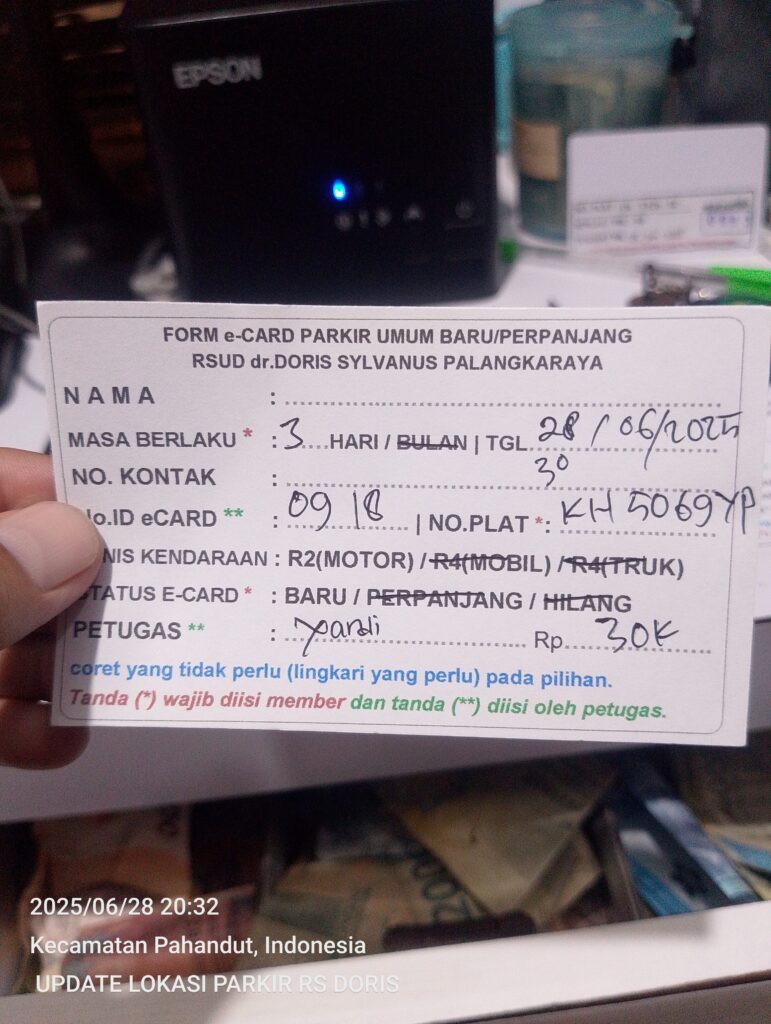 EPSON
FORM e-CARD PARKIR UMUM BARU/PERPANJANG
RSUD dr.DORIS SYLVANUS PALANGKARAYA
N A M A :
MASA BERLAKU * : 3 HARI / BULAN | TGL 28 / 06/2025
NO. KONTAK : 30
No.ID eCARD ** : 09 18 | NO.PLAT *: KH 5069 YP
NIS KENDARAAN : R2(MOTOR) / R4(MOBIL) / R4(TRUK)
STATUS E-CARD * : BARU / PERPANJANG / HILANG
PETUGAS ** : Yandi Rp. 30K
coret yang tidak perlu (lingkari yang perlu) pada pilihan.
Tanda (*) wajib diisi member dan tanda (**) diisi oleh petugas.
2025/06/28 20:32
Kecamatan Pahandut, Indonesia
UPDATE LOKASI PARKIR RS DORIS